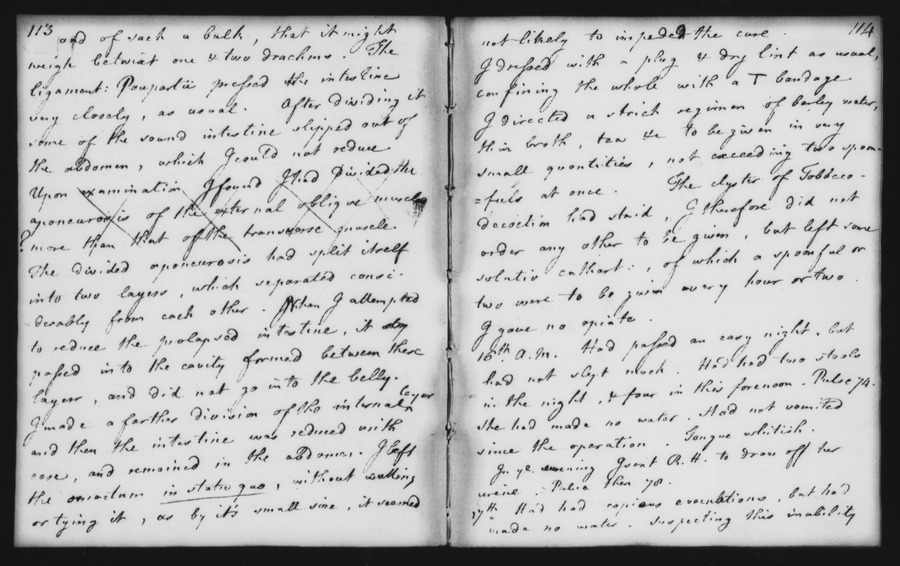 113
and of such a bulk, that it might
weigh betwixt one & two drachms. The
ligament: Poupartii pressed the intestine
very closely, as usual. After dividing it
some of the sound intestine slipped out of
the abdomen, which I could not reduce
Upon examination I found I had divided the
aponeurosis of the external oblique muscle
more than that of the transverse muscle
The divided aponeurosis had split itself
into two layers, which separated consi-
derably from each other. When I attempted
to reduce the prolapsed intestine, it
passed into the cavity formed between these
layers, and did not go into the belly.
I made a farther division of the internal layer
and then the intestine was reduced with
ease, and remained in the abdomen. I left
the omentum in statu quo, without cutting
or tying it, as by it's small size, it seemed
114
not likely to impede the cure.
I dressed with a plug & dry lint as usual,
confining the whole with a T bandage
I directed a strict regimen of barley water,
thin broth, tea &c to be given in very
small quantities, not exceeding two spoon-
=fuls at once. The clyster of Tobacco-
decoction had staid, I therefore did not
order any other to be given, but left some
solutio cathart:, of which a spoonful or
two were to be given every hour or two.
I gave no opiate.
16th A.M. Had passed an easy night, but
had not slept much. Had had two stools
in the night, & four in this forenoon. Pulse 74.
She had made no water. Had not vomited
since the operation. Tongue whitish.
In ye. evening I sent R.H. to draw off her
urine. Pulse then 78.
17th Had had copious evacuations but had
made no water. Suspecting this inability